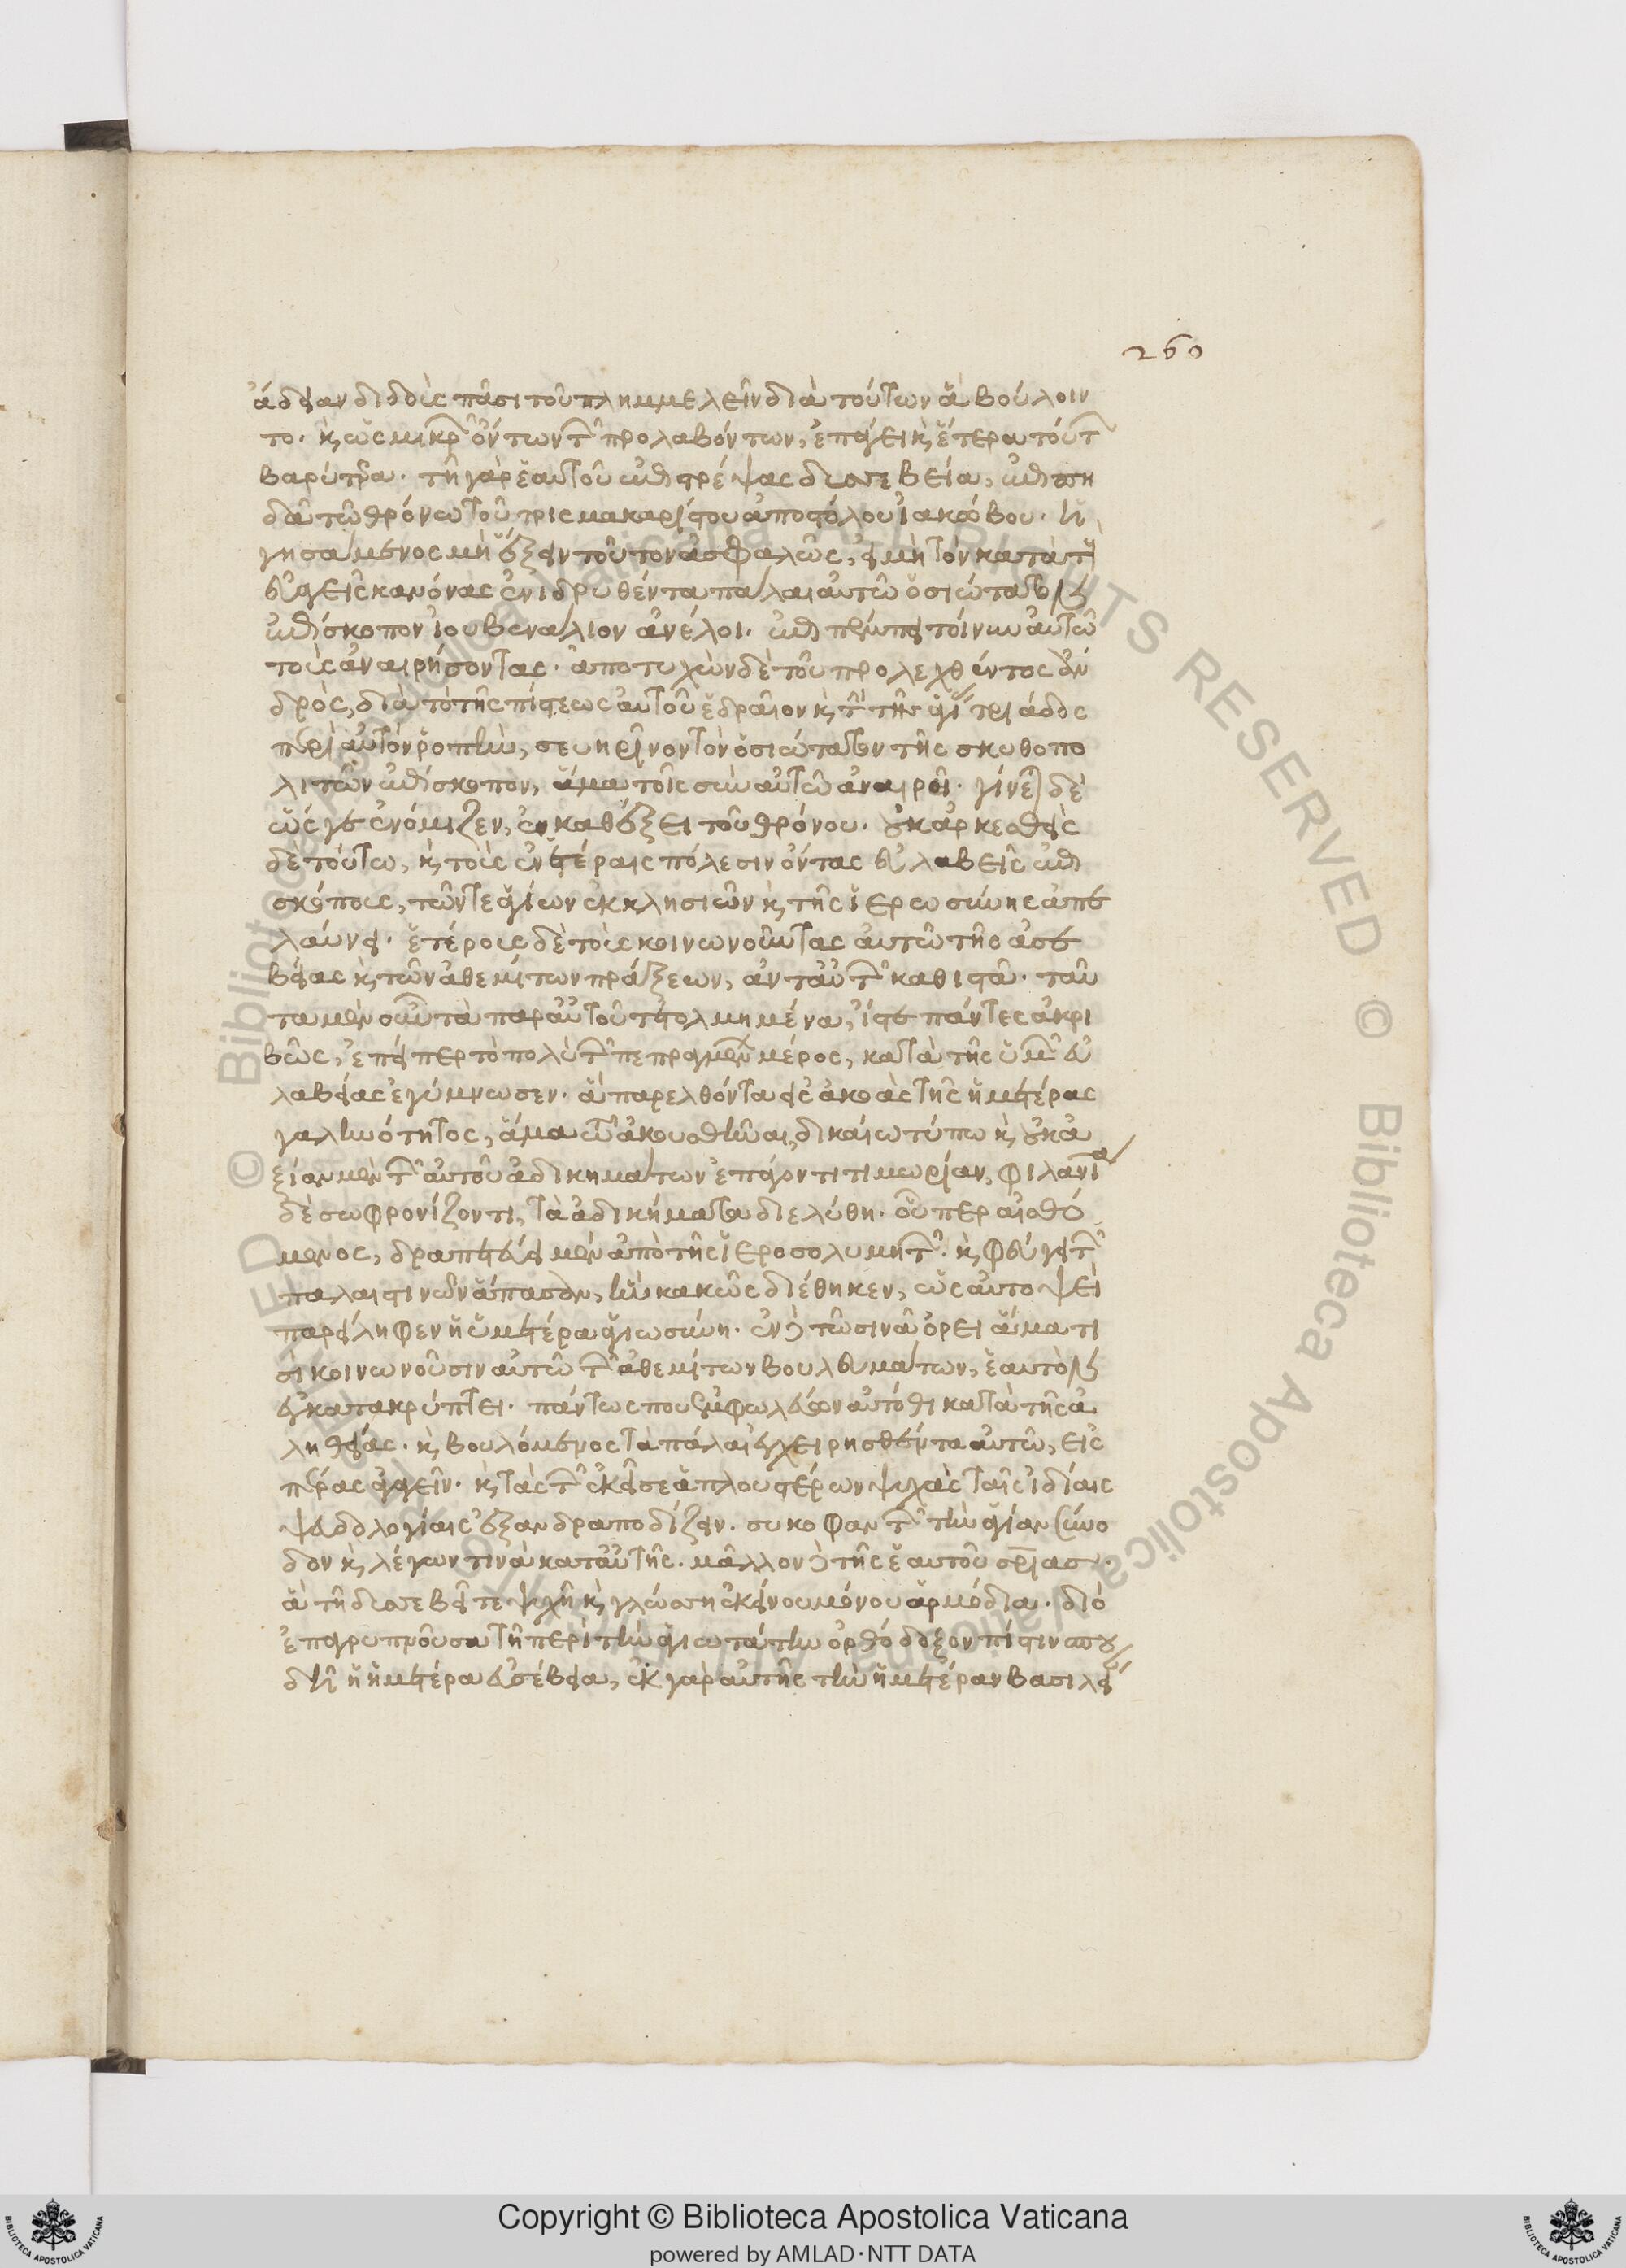 260
ἄδειαν διδοὺς πᾶσι τοῦ πλημμελεῖν διὰ τούτων ἃ βούλοιν
το. καὶ ὡς μικρῶν ὄντων τῶν προλαβόντων, ἐπάγει καὶ ἕτερα τούτων
βαρύτερα. τῇ γὰρ ἑαυτοῦ ἐπιτρέψας δυσσεβείᾳ, ἐπιπη
δᾷ τῷ θρόνῳ τοῦ τρισμακαρίστου ἀποστόλου ἰακώβου. ἡ
γησάμενος μὴ ἕξειν τοῦτον ἀσφαλῶς, εἰ μὴ τὸν κατὰ τοὺς
εὐαγεῖς κανόνας ἐνιδρυθέντα πάλαι αὐτῷ ὁσιώτατον
ἐπίσκοπον ἰουβενάλιον ἀνέλοι. ἐπιπέμπει τοίνυν αὐτῷ
τοὺς ἀναιρήσοντας. ἀποτυχὼν δὲ τοῦ προλεχθέντος ἀν
δρὸς, διὰ τὸ τῆς πίστεως αὐτοῦ ἑδραῖον καὶ τὴν τῆς ἁγίας τριάδος
περὶ αὐτὸν ῥοπὴν, σευηρῖνον τὸν ὁσιώτατον τῆς σκυθοπο
λιτῶν ἐπίσκοπον, ἅμα τοῖς σὺν αὐτῷ ἀναιρεῖ. γίνεται δὲ
ὥς γε ἐνόμιζεν, ἐν καθέξει τοῦ θρόνου. οὐκ ἀρκεσθεὶς
δὲ τούτῳ, καὶ τοὺς ἐν ἑτέραις πόλεσιν ὄντας εὐλαβεῖς ἐπι
σκόπους, τῶν τε ἁγίων ἐκκλησιῶν καὶ τῆς ἱερωσύνης ἀπε
λαύνει. ἑτέρους δὲ τοὺς κοινωνοῦντας αὐτῷ τῆς ἀσε
βείας καὶ τῶν ἀθεμίτων πράξεων, ἀντ αὐτῶν καθιστᾷ. ταῦ
τα μὲν οὖν τὰ παρ αὐτοῦ τετολμημένα, ἴστε πάντες ἀκρι
βῶς, ἐπείπερ τὸ πολὺ τῶν πεπραγμένων μέρος, κατὰ τῆς ὑμῶν εὐ
λαβείας ἐγύμνωσεν. ἃ παρελθόντα εἰς ἀκοὰς τῆς ἡμετέρας
γαληνότητος, ἅμα τῷ ἀκουσθῆναι, δικαίῳ τύπῳ καὶ οὐκ ἀ
ξίαν μὲν τῶν αὐτοῦ ἀδικημάτων ἐπάγοντι τιμωρίαν, φιλανῖα
δὲ σωφρονίζοντι, τὰ ἀδικήματα διελύθη. οὗπερ αἰσθό
μενος, δραπετεύει μὲν ἀπὸ τῆς ἱεροσολυμητῶν. καὶ φεύγει τῶν
παλαιστινῶν ἅπασαν, ἣν κακῶς διέθηκεν, ὡς αὐτοψεὶ
παρείληφεν ἡ ὑμετέρα ἁγιωσύνη. ἐν δὲ τῷ σινᾷ ὄρει ἅμα τι
σι κοινωνοῦσιν αὐτῷ τῶν ἀθεμίτων βουλευμάτων, ἑαυτὸν
ἐγκατακρύπτει. πάντως που ἐμφωλεύων αὐτόθι κατὰ τῆς ἀ
ληθείας. καὶ βουλόμενος τὰ πάλαι ἐγχειρησθέντα αὐτῷ, εἰς
πέρας ἀγαγεῖν. καὶ τὰς τῶν ἐκεῖσε ἁπλουστέρων ψυχὰς ταῖς ἰδίαις
ψευδολογίαις ἐξανδραποδίζειν. συκοφαντῶν τὴν ἁγίαν σύνο
δον καὶ λέγων τινὰ κατ αὐτῆς. μᾶλλον δὲ τῆς ἑαυτοῦ σρίας.
ἃ τῇ δυσσεβεῖ τε ψυχῇ καὶ γλώσσῃ ἐκείνου μόνου ἁρμόδια. διό
ἐπαγρυπνοῦσα τῇ περὶ τὴν ἁγιωτάτην ὀρθόδοξον πίστιν σπου
δῇ ἡ ἡμετέρα εὐσέβεια, ἐκ γὰρ αὐτῆς τὴν ἡμετέραν βασιλεί
Copyright © Biblioteca Apostolica Vaticana
powered by AMLAD·NTT DATA